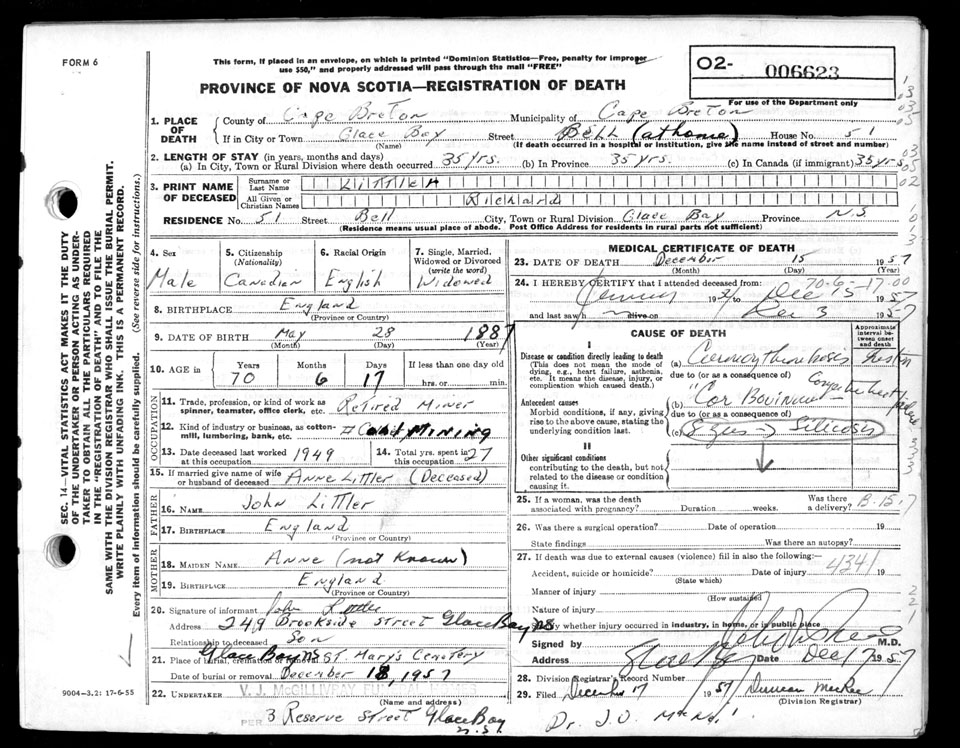 FORM 6
This form, if placed in an envelope, on which is printed "Dominion Statistics—Free, penalty for improper
use $50," and properly addressed will pass through the mail "FREE"
O2- 006623
For use of the Department only
PROVINCE OF NOVA SCOTIA—REGISTRATION OF DEATH
1. PLACE OF DEATH
County of Cape Breton Municipality of Cape Breton
If in City or Town Glace Bay Street Bell (at home) House No. 51
(Name) (If death occurred in a hospital or institution, give the name instead of street and number)
2. LENGTH OF STAY (in years, months and days)
(a) In City, Town or Rural Division where death occurred 35 yrs. (b) In Province 35 yrs. (c) In Canada (if immigrant) 35 yrs.
3. PRINT NAME OF DECEASED
Surname or Last Name LITTLER
All Given or Christian Names Richard
RESIDENCE No. 51 Street Bell City, Town or Rural Division Glace Bay Province N.S.
(Residence means usual place of abode. Post Office Address for residents in rural parts not sufficient)
4. Sex
Male
5. Citizenship
(Nationality)
Canadian
6. Racial Origin
English
7. Single, Married,
Widowed or Divorced
(write the word)
Widowed
8. BIRTHPLACE England
(Province or Country)
9. DATE OF BIRTH May 28 1887
(Month) (Day) (Year)
10. AGE in
Years Months Days If less than one day old
70 6 17 hrs. or min.
OCCUPATION
11. Trade, profession, or kind of work as
spinner, teamster, office clerk, etc. Retired Miner
12. Kind of industry or business, as cotton-
mill, lumbering, bank, etc. Coal MINING
13. Date deceased last worked
at this occupation 1949
14. Total yrs. spent in
this occupation 27
15. If married give name of wife
or husband of deceased Anne Littler (Deceased)
FATHER
16. NAME John Littler
17. BIRTHPLACE England
(Province or Country)
MOTHER
18. MAIDEN NAME Anne (not known)
19. BIRTHPLACE England
(Province or Country)
20. Signature of informant John Littler
Address 249 Brookside Street Glace Bay NS
Relationship to deceased Son
21. Place of burial, cremation or removal Glace Bay NS St Mary's Cemetery
Date of burial or removal December 18, 1957
22. UNDERTAKER V. J. McGILLIVRAY FUNERAL
(Name and address)
PER 3 Reserve Street Glace Bay
N.S.
MEDICAL CERTIFICATE OF DEATH
23. DATE OF DEATH December 15 1957
(Month) (Day) (Year)
24. I HEREBY CERTIFY that I attended deceased from: 70-6-17-00
1957 to Dec 15 1957
and last saw h m alive on Dec 3 1957
CAUSE OF DEATH
Approximate interval between onset and death
I
Disease or condition directly leading to death
(This does not mean the mode of
dying, e.g., heart failure, asthenia,
etc. It means the disease, injury, or
complication which caused death.)
(a) Coronary thrombosis
due to (or as a consequence of)
Antecedent causes
Morbid conditions, if any, giving
rise to the above cause, stating the
underlying condition last.
(b) "Cor Bovinum"
due to (or as a consequence of)
(c) Silicosis
II
Other significant conditions
contributing to the death, but not
related to the disease or condition
causing it.
25. If a woman, was the death
associated with pregnancy? Duration weeks. Was there
a delivery? B-15-7
26. Was there a surgical operation? Date of operation 19
State findings Was there an autopsy?
27. If death was due to external causes (violence) fill in also the following:—
Accident, suicide or homicide? Date of injury 4341 19
(State which)
Manner of injury
(How sustained)
Nature of injury
Specify whether injury occurred in industry, in home, or in public place
Signed by M.D.
Address Glace Bay Date Dec 17 1957
28. Division Registrar's Record Number
29. Filed December 17 1957 Duncan MacRae
(Division Registrar)
Dr. J. D. MacNeil
SEC. 14—VITAL STATISTICS ACT MAKES IT THE DUTY
OF THE UNDERTAKER OR PERSON ACTING AS UNDER-
TAKER TO OBTAIN ALL THE PARTICULARS REQUIRED
IN THE "REGISTRATION OF DEATH" AND TO FILE THE
SAME WITH THE DIVISION REGISTRAR WHO SHALL ISSUE THE BURIAL PERMIT.
WRITE PLAINLY WITH UNFADING INK. THIS IS A PERMANENT RECORD.
Every item of information should be carefully supplied. (See reverse side for instructions.)
9004-3.2: 17-6-55